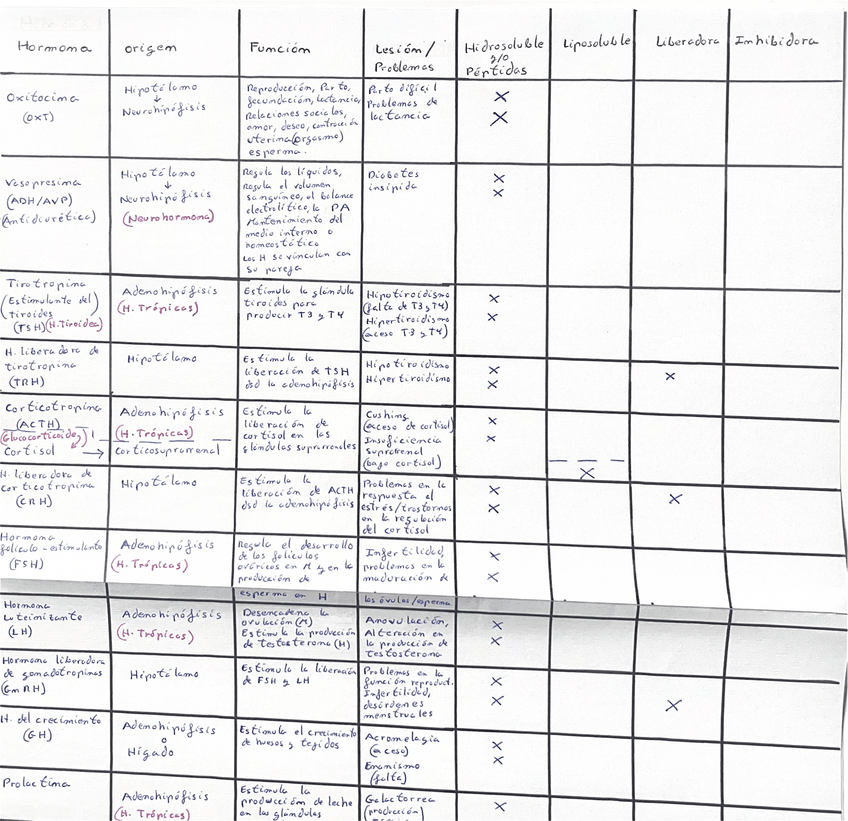 Hormona
origen
Función
Lesión/
Problemas
Hidrosoluble
y/o
Péptidas
Liposoluble
Liberadora
Inhibidora
Oxitocina
(OXT)
Hipotálamo
↓
Neurohipófisis
Reproducción, Parto,
fecundación, lactancia,
Relaciones sociales,
amor, deseo, contracción
uterina (orgasmo)
esperma.
Parto difícil
Problemas de
lactancia
X
X
Vasopresina
(ADH/AVP)
(Antidiurética)
Hipotálamo
↓
Neurohipófisis
(Neurohormona)
Regula los líquidos,
Regula el volumen
sanguíneo, el balance
electrolítico, la PA
Mantenimiento del
medio interno o
homeostático
Los H se vinculan con
su pareja
Diabetes
insípida
X
X
Tirotropina
(Estimulante del
tiroides)
(TSH) (H. Tiroidea)
Adenohipófisis
(H. Trópicas)
Estimula la glándula
tiroides para
producir T3 y T4
Hipotiroidismo
(falta de T3 y T4)
Hipertiroidismo
(aceso T3 y T4)
X
X
H. liberadora de
tirotropina
(TRH)
Hipotálamo
Estimula la
liberación de TSH
dsd la adenohipófisis
Hipotiroidismo
Hipertiroidismo
X
X
X
Corticotropina
(ACTH)
(Glucocorticoide)
Cortisol →
Adenohipófisis
(H. Trópicas)
Corticosuprarrenal
Estimula la
liberación de
cortisol en las
glándulas suprarrenales
Cushing
(exceso de cortisol)
Insuficiencia
suprarrenal
(bajo cortisol)
X
X
X
H. liberadora de
corticotropina
(CRH)
Hipotálamo
Estimula la
liberación de ACTH
dsd la adenohipófisis
Problemas en la
respuesta al
estrés/trastornos
en la regulación
del cortisol
X
X
X
Hormona
folículo-estimulante
(FSH)
Adenohipófisis
(H. Trópicas)
Regula el desarrollo
de los folículos
ováricos en M y en la
producción de
esperma en H
Infertilidad,
problemas en la
maduración de
los óvulos/esperma
X
X
Hormona
Luteinizante
(LH)
Adenohipófisis
(H. Trópicas)
Desencadena la
ovulación (M)
Estimula la producción
de testosterona (H)
Anovulación,
Alteración en
la producción de
testosterona
X
X
Hormona liberadora
de gonadotropinas
(GnRH)
Hipótalamo
Estimula la liberación
de FSH y LH
Problemas en la
función reproduct.
Infertilidad,
desórdenes
menstruales
X
X
X
H. del crecimiento
(GH)
Adenohipófisis
o
Hígado
Estimula el crecimiento
de huesos y tejidos
Acromelagia
(aceso)
Enanismo
(falta)
X
X
Prolactina
Adenohipófisis
(H. Trópicas)
Estimula la
producción de leche
en las glándulas
Galactorrea
(producción)
X